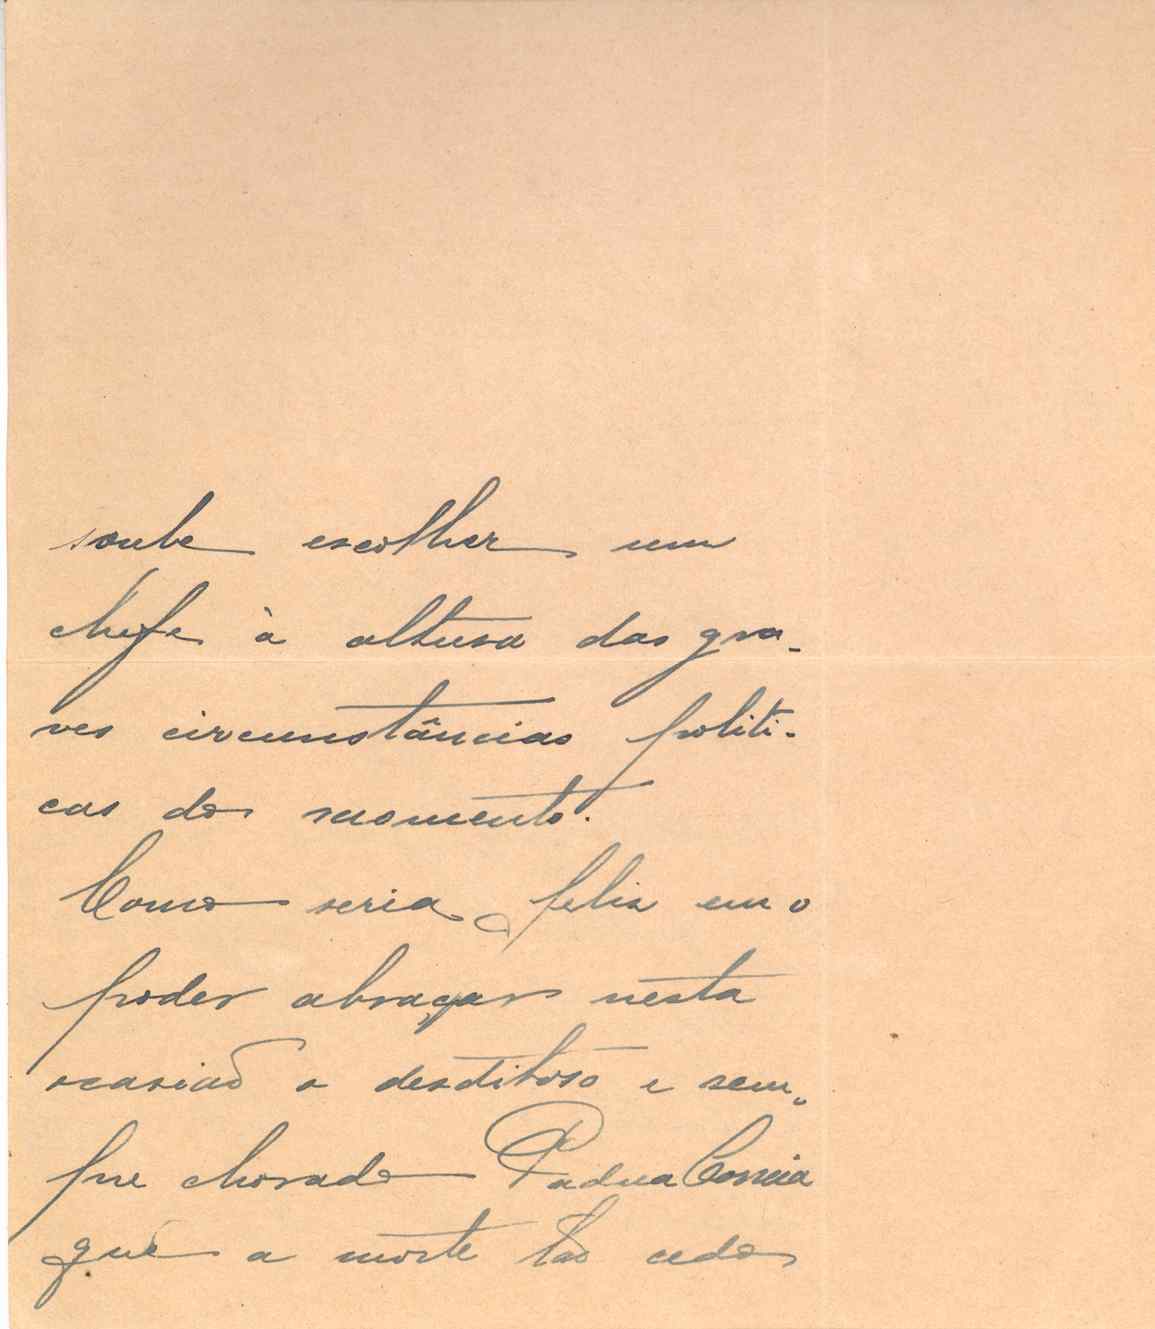 soube escolher um
chefe à altura das gra-
ves circunstâncias politi-
cas do momento.
Como seria feliz em o
poder abraçar nesta
ocasião o desditoso e sem-
pre chorado Padua Correia
que a morte tão cedo